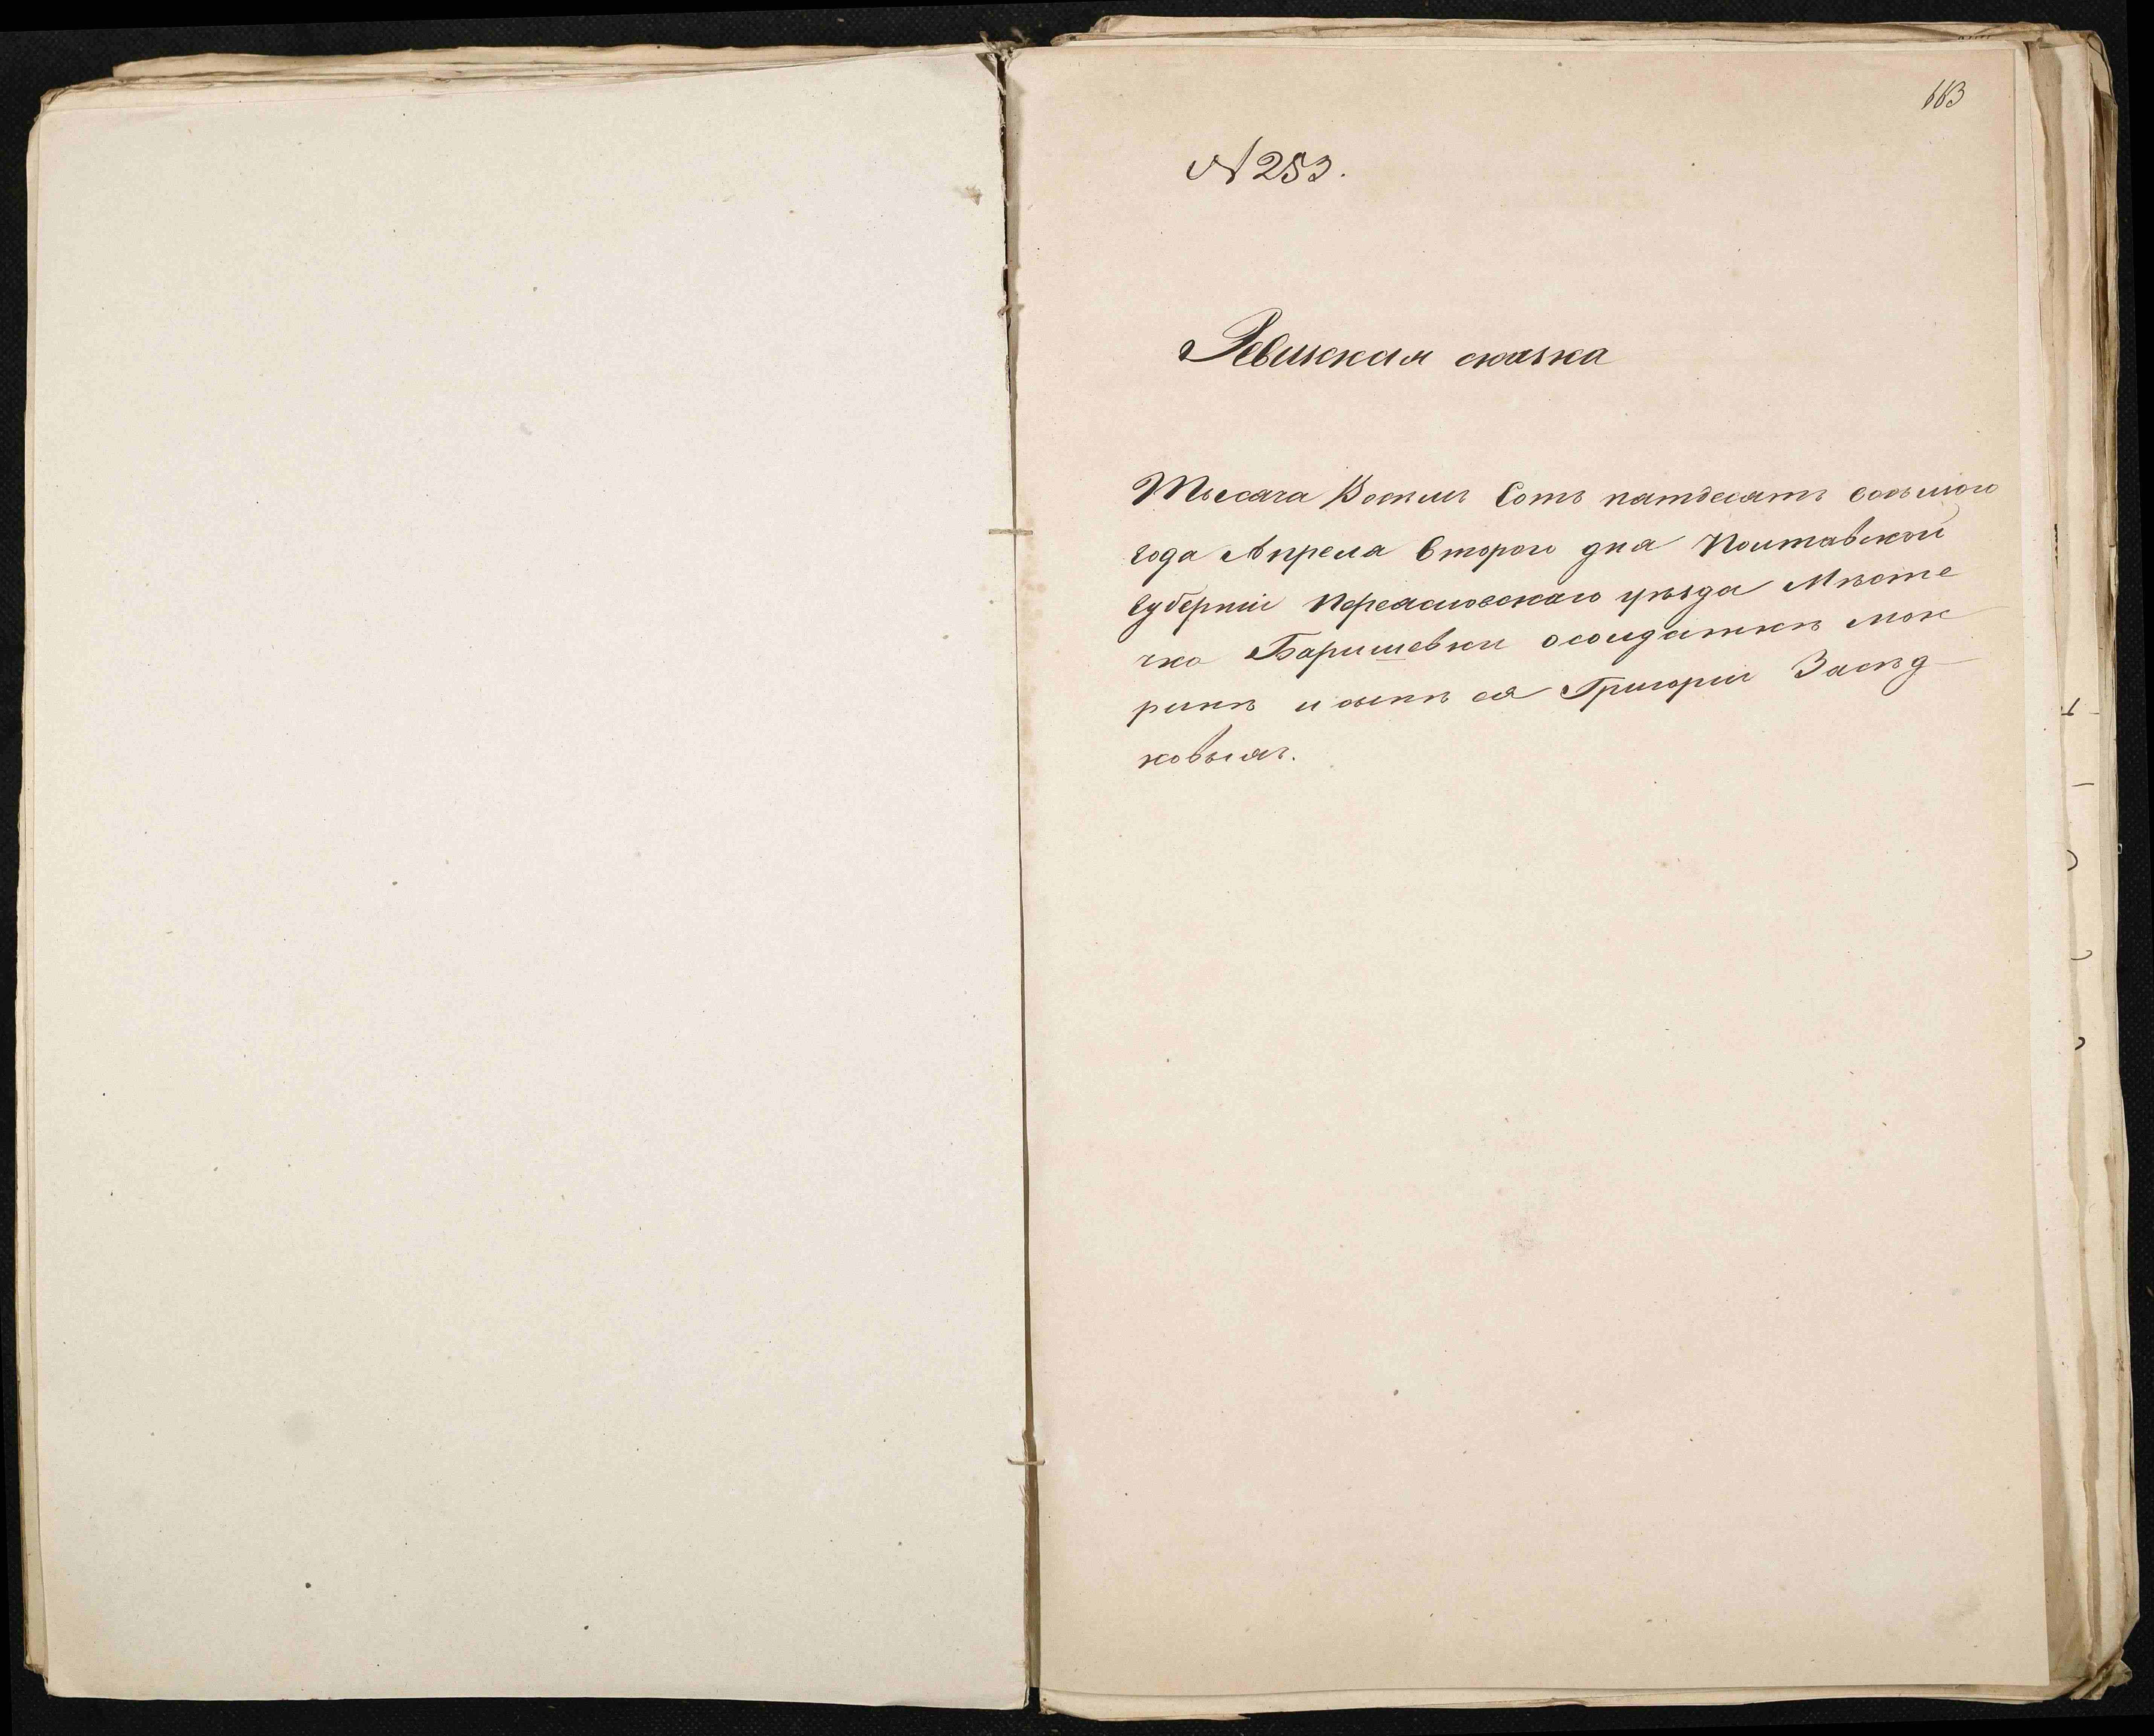 163
№ 253.
Ревизская сказка
Тысяча Восемь Сотъ пятдесятъ восьмого
года Апреля второго дня Полтавской
Губерніи Переясловскаго уѣзда Мѣсте
чка Баришевки о солдаткѣ Мок
ринѣ и сынѣ ея Григоріи Засѣд
ковыхъ.